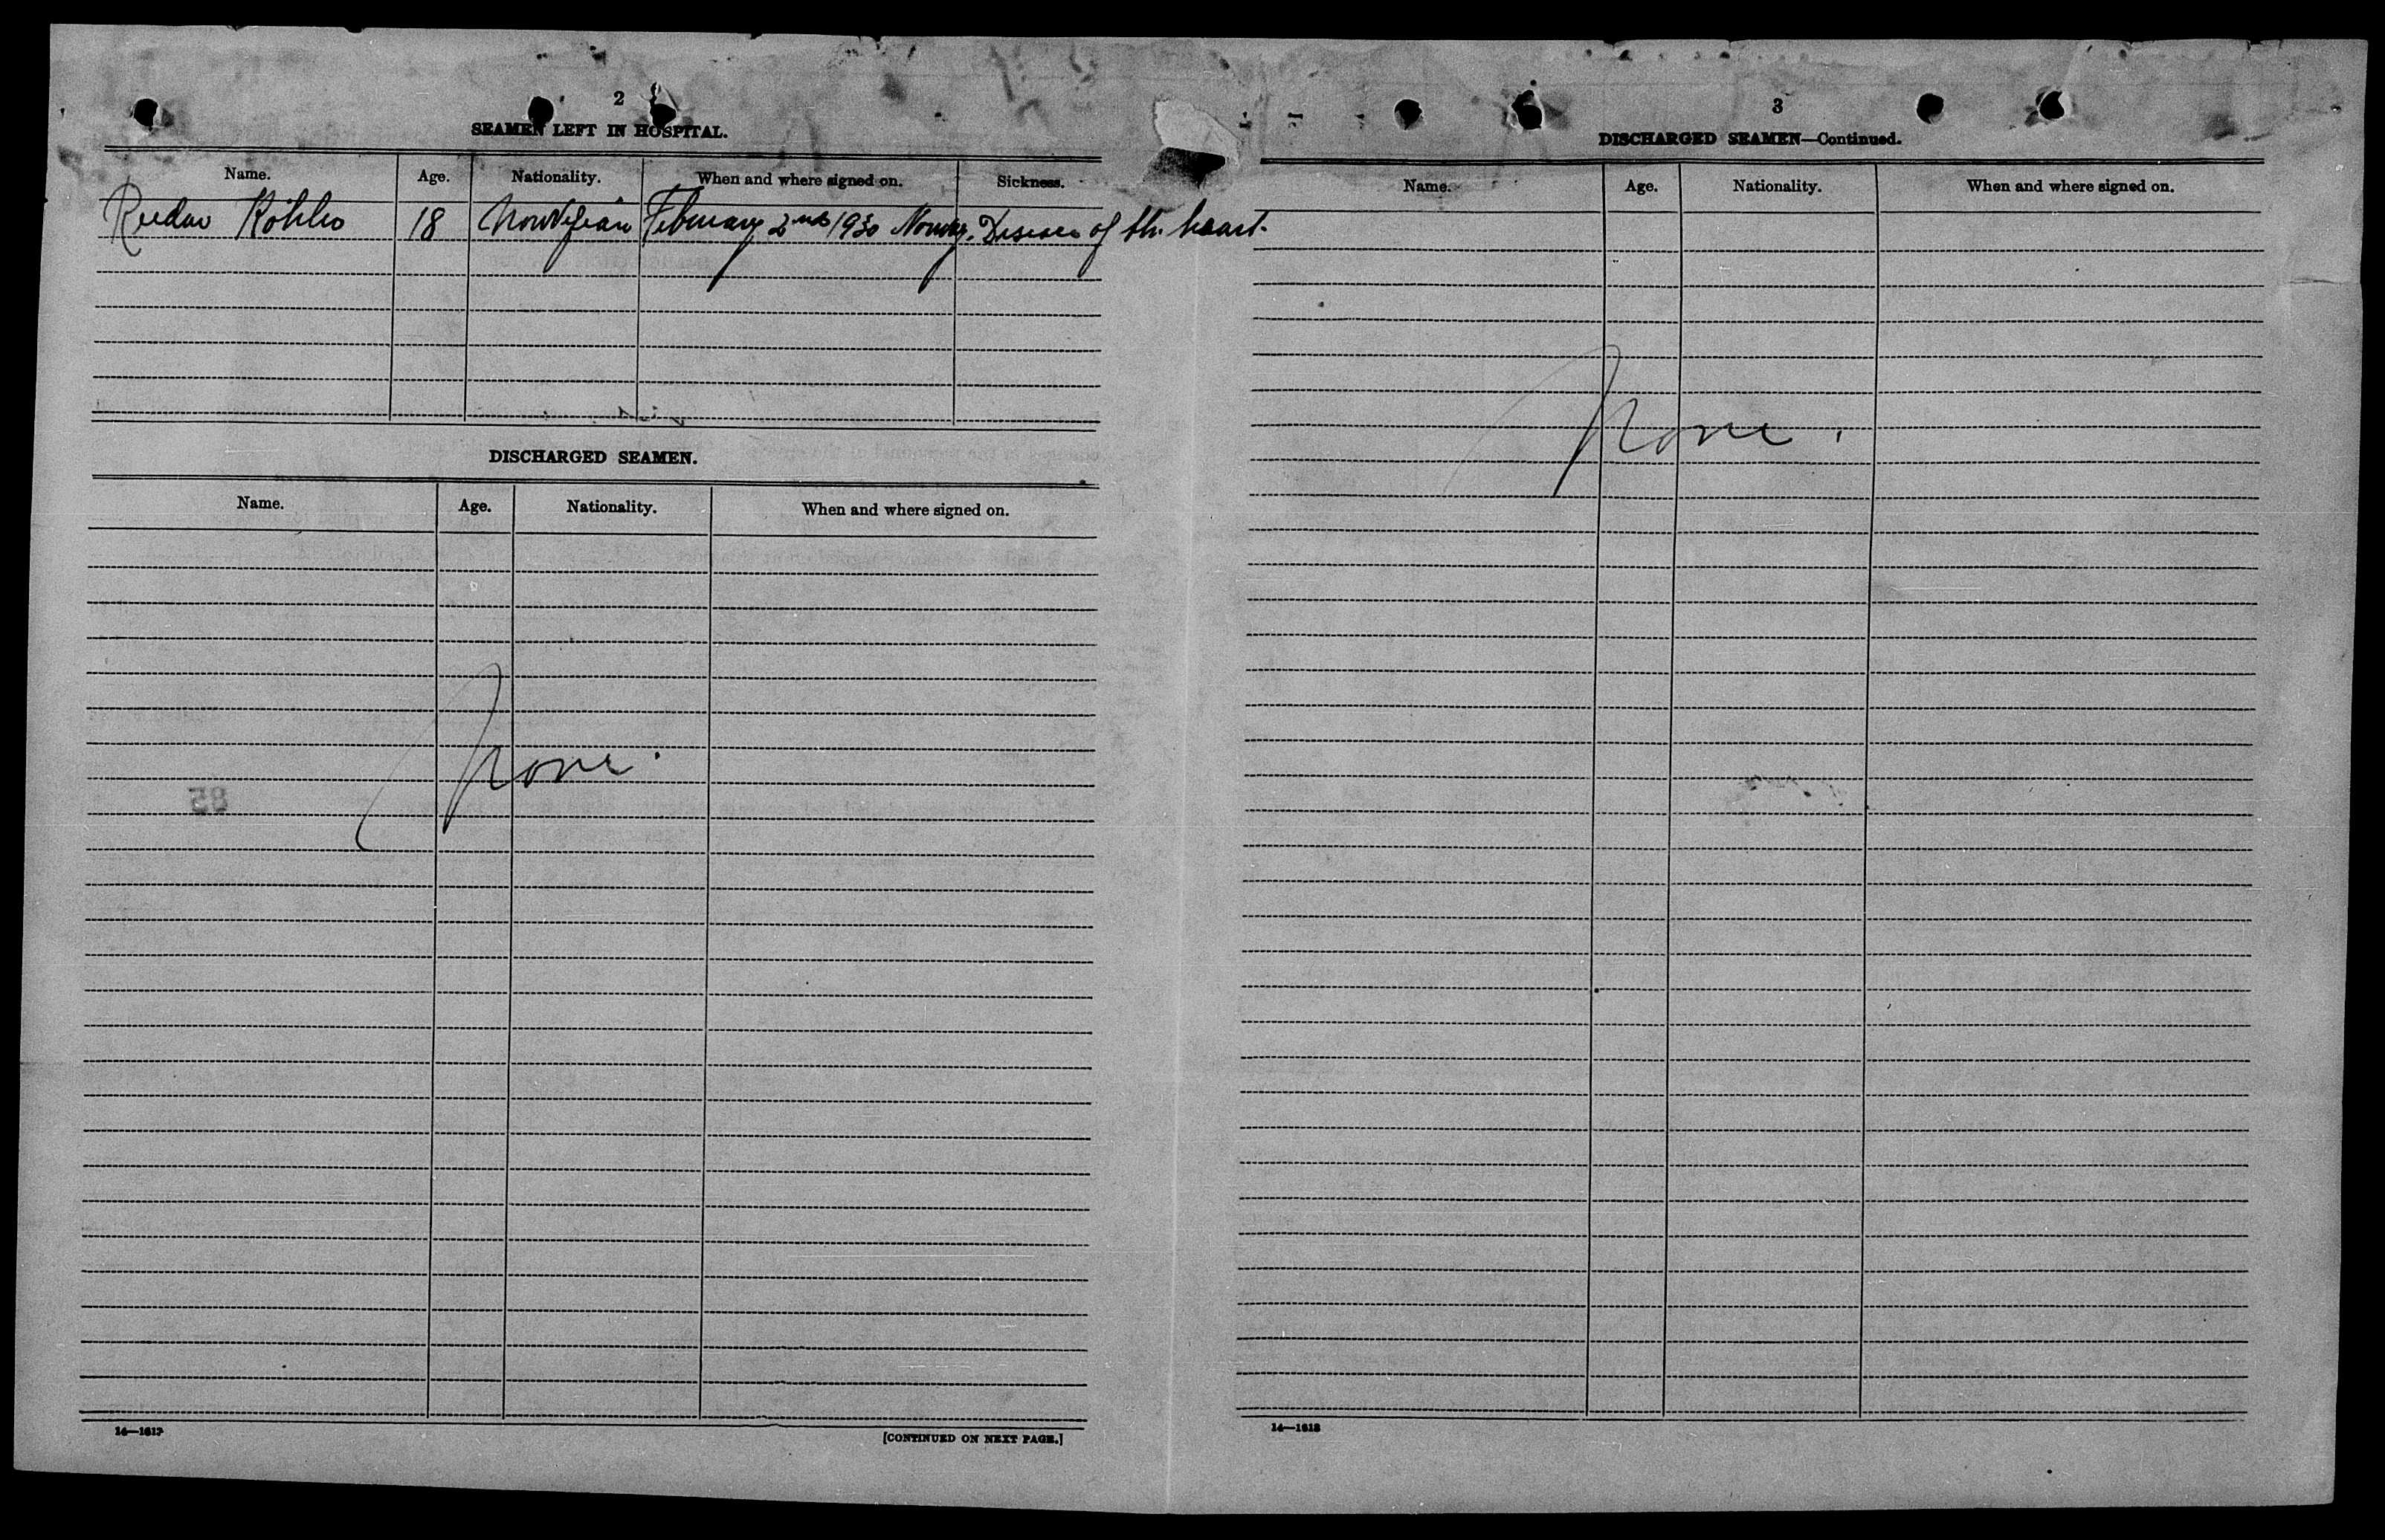 2
SEAMEN LEFT IN HOSPITAL.
Name. Age. Nationality. When and where signed on. Sickness.
Reidar Köhler 18 Norwegian February 2nd 1930 Norway. Disease of the heart.
DISCHARGED SEAMEN.
Name. Age. Nationality. When and where signed on.
None.
85
14—1617
[CONTINUED ON NEXT PAGE.]
3
DISCHARGED SEAMEN—Continued.
Name. Age. Nationality. When and where signed on.
None.
14—1618